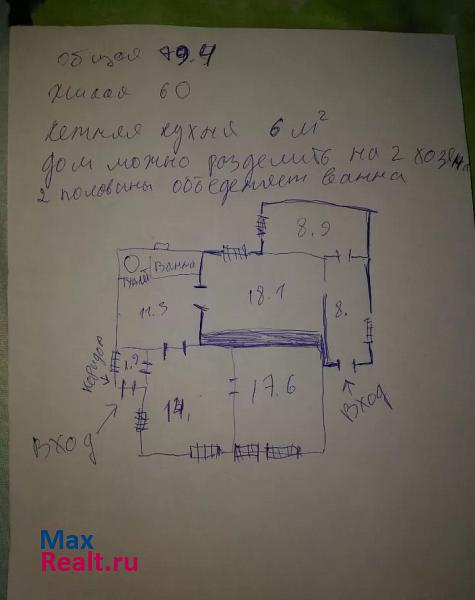 общая 79.4
жилая 60
летняя кухня 6 м²
дом можно разделить на 2 хозяи
2 половины объеденяет ванна
8.9
туалет Ванна
18.1
8.
11.3
1.9
коридор
14,
17.6
Вход
Вход
Max
Realt.ru